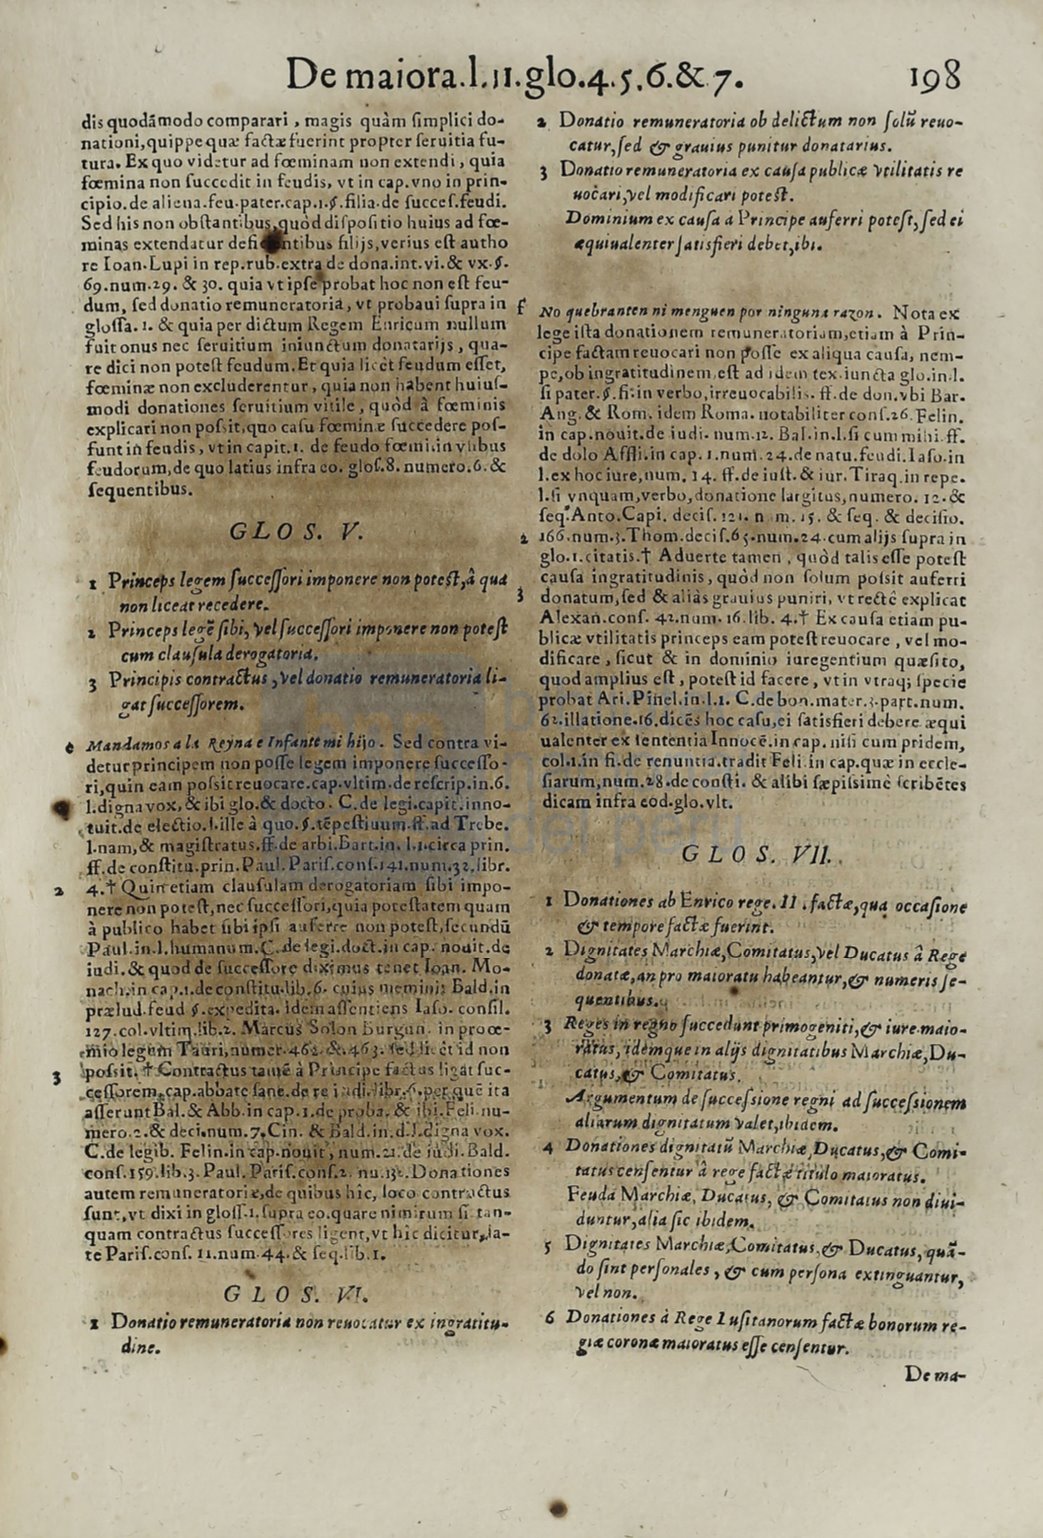 De maiora.l.11.glo.4.5.6.& 7. 198
dis quodãmodo comparari, magis quàm ſimplici do-
nationi, quippe quæ factæ fuerint propter ſeruitia fu-
tura. Ex quo videtur ad fœminam non extendi, quia
fœmina non ſuccedit in feudis, vt in cap.vno in prin-
cipio.de aliena.feu.pater.cap.1.§.filia.de ſucceſ.feudi.
Sed his non obſtantibus, quòd diſpoſitio huius ad fœ-
minas extendatur deficientibus filijs, verius eſt autho
re Ioan.Lupi in rep.rub.extra de dona.int.vi.& vx.§.
69.num.29. & 30. quia vt ipſe probat hoc non eſt feu-
dum, ſed donatio remuneratoria, vt probaui ſupra in
gloſſa.1. & quia per dictum Regem Enricum nullum
fuit onus nec ſeruitium iniunctum donatarijs, qua-
re dici non poteſt feudum. Et quia licèt feudum eſſet,
fœminæ non excluderentur, quia non habent huiuſ-
modi donationes ſeruitium vitile, quòd à fœminis
explicari non poſsit, quo caſu fœminæ ſuccedere poſ-
ſunt in feudis, vt in capit.1. de feudo fœmi.in
feudorum, de quo latius infra eo. gloſ.8. numero.6. &
ſequentibus.
GLOS. V.
1 Princeps legem ſucceſſori imponere non poteſt, à qua
non liceat recedere.
2 Princeps legẽ ſibi, vel ſucceſſori imponere non poteſt
cum clauſula derogatoria.
3 Principis contractus, vel donatio remuneratoria li-
gat ſucceſſorem.
e Mandamos a la Reyna e Infante mi hijo. Sed contra vi-
detur principem non poſſe legem imponere ſucceſſo-
ri, quin eam poſsit reuocare.cap.vltim.de reſcrip.in.6.
l.digna vox, & ibi glo.& docto. C.de legi.capit.inno-
tuit.de electio.l.ille à quo.§.tẽpeſtiuum.ff.ad Trebe.
l.nam, & magiſtratus.ff.de arbi.Bart.in. l.1.circa prin.
ff.de conſtitu.prin.Paul.Pariſ.conſ.141.num.32.libr.
2 4.† Quin etiam clauſulam derogatoriam ſibi impo-
nere non poteſt, nec ſucceſſori, quia poteſtatem quam
à publico habet ſibi ipſi auferre non poteſt, ſecundũ
Paul.in.l.humanum.C.de legi.doct.in cap. nouit.de
iudi.& quod de ſucceſſore diximus tenet Ioan. Mo-
nach.in cap.1.de conſtitu.lib.6. cuius meminit Bald.in
prælud.feud §.expedita. idem aſſentiens Iaſo. conſil.
127.col.vltim.lib.2. Marcus Solon Burgun. in procœ-
mio legum Tauri, numer.462.&.463. ſed licèt id non
3 poſsit. † Contractus tamẽ à Principe factus ligat ſuc-
ceſſorem, cap.abbate ſane.de re iudi.libr.6. per quẽ ita
aſſerunt Bal.& Abb.in cap.1.de proba. & ibi.Feli.nu-
mero.2.& deci.num.7. Cin. & Bald.in.d.l.digna vox.
C.de legib. Felin.in cap.nouit, num.21. de iudi.Bald.
conſ.159.lib.3. Paul. Pariſ.conſ.2. nu.132. Donationes
autem remuneratoriæ, de quibus hic, loco contractus
ſunt, vt dixi in gloſſ.1.ſupra eo.quare nimirum ſi tan-
quam contractus ſucceſſores ligent, vt hic dicitur, la-
te Pariſ.conſ. 11.num.44.& ſeq.lib.1.
GLOS. VI.
1 Donatio remuneratoria non reuocatur ex ingratitu-
dine.
2 Donatio remuneratoria ob delictum non ſolũ reuo-
catur, ſed & grauius punitur donatarius.
3 Donatio remuneratoria ex cauſa publicæ vtilitatis re
uocari, vel modificari poteſt.
Dominium ex cauſa a Principe auferri poteſt, ſed ei
æquiualenter ſatisfieri debet, ibi.
f No quebranten ni menguen por ninguna razon. Nota ex
lege iſta donationem remuneratoriam, etiam à Prin-
cipe factam reuocari non poſſe ex aliqua cauſa, nem-
pe, ob ingratitudinem, eſt ad idem tex.iuncta glo.in.l.
ſi pater.§.fi.in verbo, irreuocabilis. ff.de don.vbi Bar.
Ang.& Rom. idem Roma. notabiliter conſ.26. Felin.
in cap.nouit.de iudi. num.12. Bal.in.l.ſi cum mihi.ff.
de dolo Affli.in cap. 1.num. 24.de natu.feudi.Iaſo.in
l.ex hoc iure, num. 14. ff.de iuſt.& iur. Tiraq.in repe.
l.ſi vnquam, verbo, donatione largitus, numero. 12.&
ſeq. Anto.Capi. deciſ.121. num. 15. & ſeq. & deciſio.
2 166.num.3.Thom.deciſ.65.num.24.cum alijs ſupra in
glo.1.citatis.† Aduerte tamen, quòd talis eſſe poteſt
cauſa ingratitudinis, quòd non ſolum poſsit auferri
3 donatum, ſed & aliàs grauius puniri, vt rectè explicat
Alexan.conſ. 42.num. 16.lib. 4.† Ex cauſa etiam pu-
blicæ vtilitatis princeps eam poteſt reuocare, vel mo-
dificare, ſicut & in dominio iuregentium quæſito,
quod amplius eſt, poteſt id facere, vt in vtraq; ſpecie
probat Ari.Pinel.in.l.1. C.de bon.mater.3.part.num.
62.illatione.16.dicẽs hoc caſu, ei ſatisfieri debere æqui
ualenter ex ſententia Innocẽ.in cap. niſi cum pridem,
col.1.in fi.de renuntia.tradit Feli.in cap.quæ in eccle-
ſiarum, num.28.de conſti. & alibi ſæpiſsimè ſcribẽtes
dicam infra eod.glo.vlt.
GLOS. VII.
1 Donationes ab Enrico rege.II.factæ, qua occaſione
& tempore factæ fuerint.
2 Dignitates Marchiæ, Comitatus, vel Ducatus à Rege
donatæ, an pro maioratu habeantur, & numeris ſe-
quentibus.
3 Reges in regno ſuccedunt primogeniti, & iure maio-
ratus, idemque in alijs dignitatibus Marchiæ, Du-
catus, & Comitatus.
Argumentum de ſucceſsione regni ad ſucceſsionem
aliarum dignitatum valet, ibidem.
4 Donationes dignitatũ Marchiæ, Ducatus, & Comi-
tatus cenſentur à rege factæ titulo maioratus.
Feuda Marchiæ, Ducatus, & Comitatus non diui-
duntur, alia ſic ibidem.
5 Dignitates Marchiæ, Comitatus, & Ducatus, quã-
do ſint perſonales, & cum perſona extinguantur,
vel non.
6 Donationes à Rege Luſitanorum factæ bonorum re-
giæ coronæ maioratus eſſe cenſentur.
De ma-